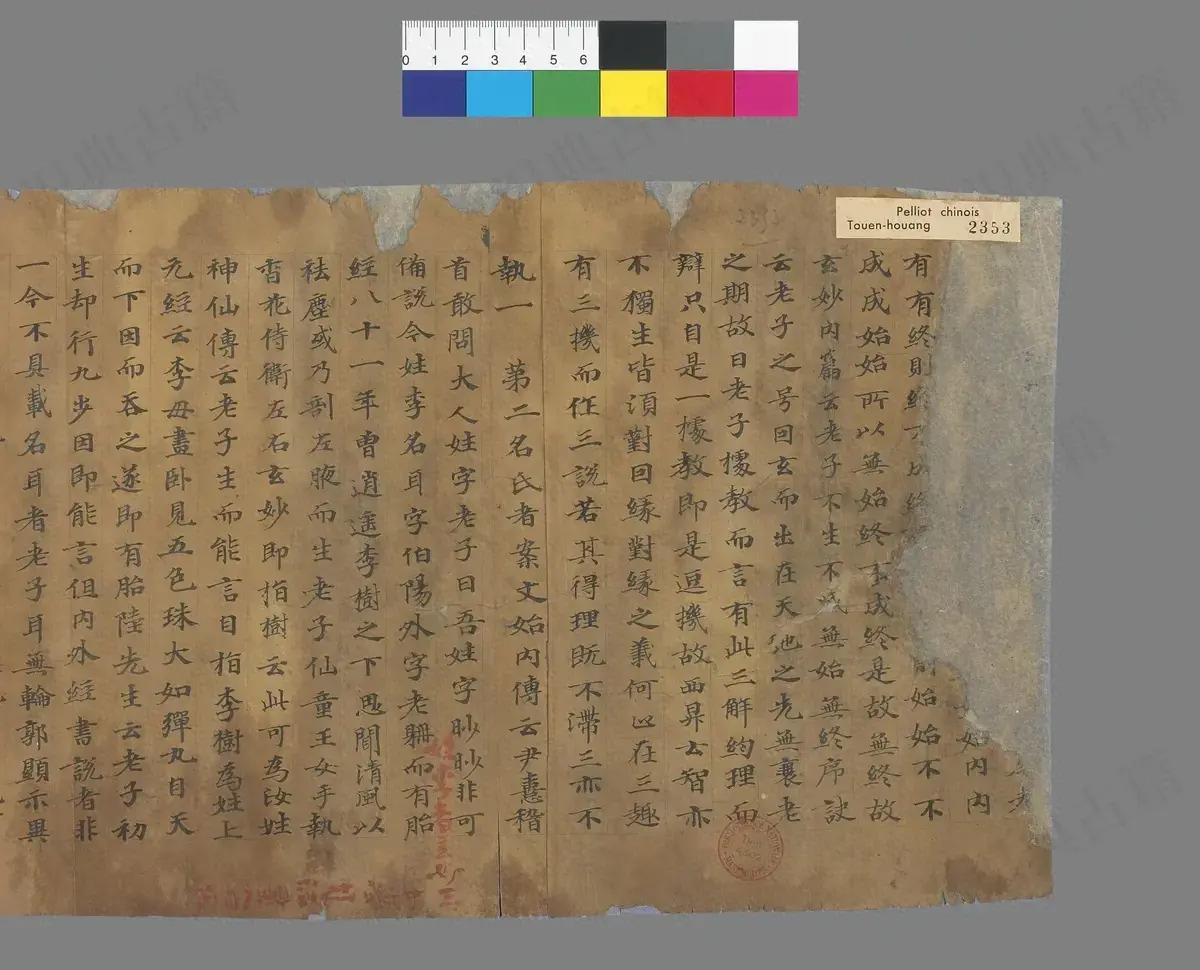 Pelliot chinois
Touen-houang 2353
0 1 2 3 4 5 6
老
始内内
有有終則終不成終前始始不不
成成始始所以無始終不成終是故無終故
玄妙内篇云老子不生不滅無始無終序訣
云老子之号因玄而出在天地之先無衰老
之期故曰老子據教而言有此三解約理而
辯只自是一據教即是逗機故西昇云智亦
不獨生皆須對因緣對緣之義何以在三趣
有三機而作三說若其得理既不滯三亦不
執一 第二名氏者案文始内傳云尹憙稽
首敢問大人姓字老子曰吾姓字眇眇非可
備說今姓李名耳字伯陽外字老聃而有胎
經八十一年曹逍遥李樹之下思間清風以
祛塵或乃剖左腋而生老子仙童玉女手執
香花侍衛左右玄妙即指樹云此可為汝姓
神仙傳云老子生而能言自指李樹為姓上
元經云李母晝卧見五色珠大如彈丸自天
而下因而吞之遂即有胎陸先生云老子初
生却行九步因即能言但内外經書說者非
一今不具載名耳者老子耳無輪郭顯示異